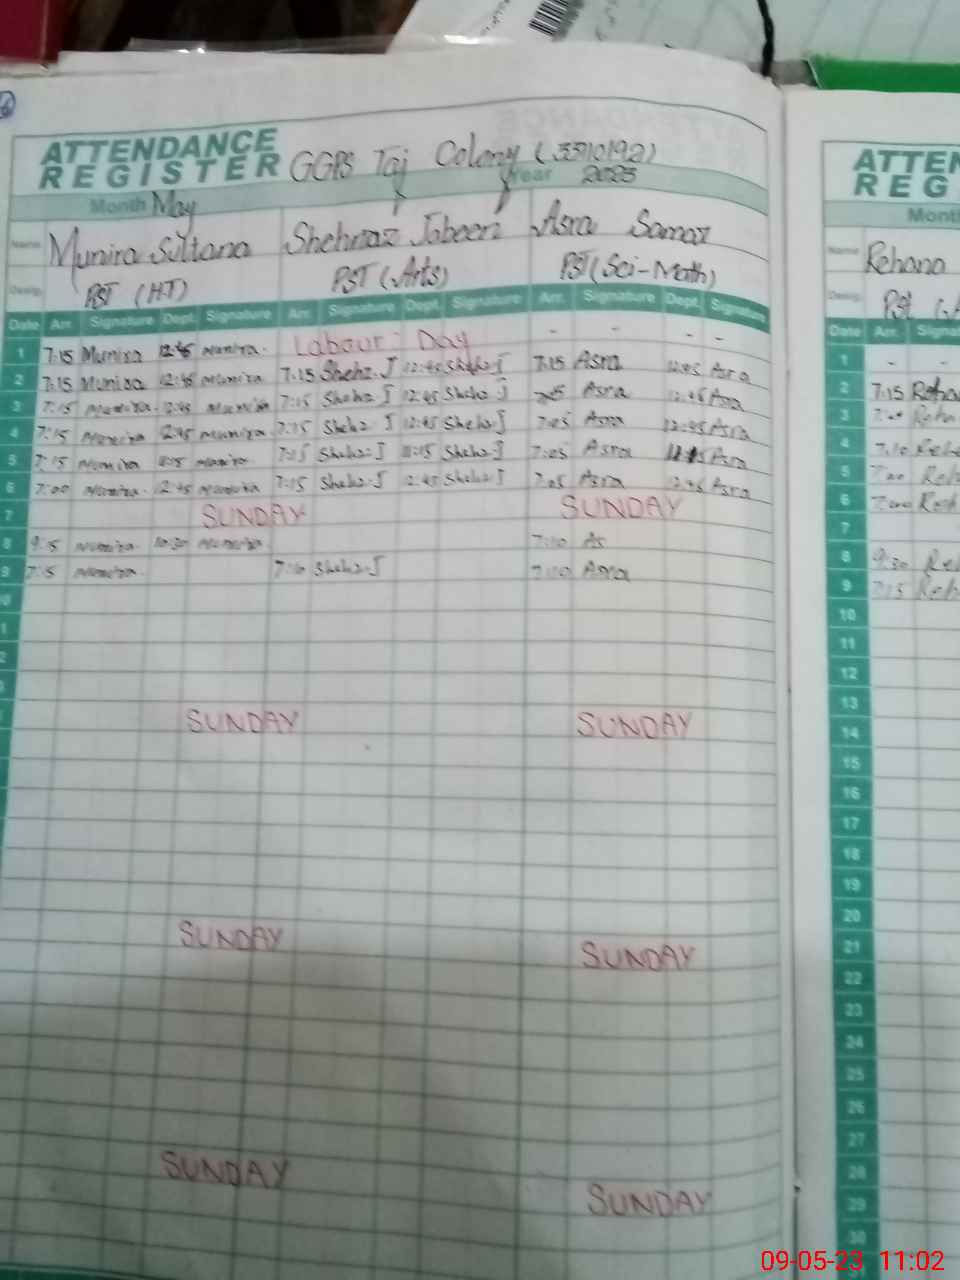 ATTENDANCE REGISTER GGPS Taj Colony (33010192)
Month May Year 2023
Name Munira Sultana Shehnaz Jabeen Asra Samar
Desig. PST (H.T) PST (Arts) PST (Sci-Math)
Date Arr. Signature Dept. Signature Arr. Signature Dept. Signature Arr. Signature Dept. Signature
1 7:15 Munira 12:45 Munira. Labour Day - - - -
2 7:15 Munira 12:45 Munira 7:15 Shehz. J 12:45 Shehz. J 7:15 Asra 12:45 Asra
3 7:15 Munira. 12:45 Munira 7:15 Shehz J 12:45 Shehz J Asra 12:45 Asra
4 7:15 Munira 12:45 Munira 7:15 Shehz J 12:45 Shehz J 7:05 Asra 12:45 Asra
5 7:15 Munira Munira. 7:15 Shehz. J Shehz. J 7:05 Asra Asra
6 7:00 Munira. 12:45 Munira 7:15 Shehz. J 12:45 Shehz J 7:05 Asra 12:45 Asra
7 SUNDAY SUNDAY
8 9:15 Munira. 10:30 Munira 7:10 As
9 7:15 Munira. 7:10 Shehz. J 7:00 Asra
SUNDAY SUNDAY
SUNDAY SUNDAY
SUNDAY SUNDAY
ATTEN
REG
Month
Name Rehana
Desig. PST
Date Arr. Signa
1 - -
2 7:15 Reha
3 Reha
4 7:10 Reh
5 7:00 Reh
6 7:00 Reh
7
8 9:30 Reh
9 7:15 Reh
10
11
12
13
14
15
16
17
18
19
20
21
22
23
24
25
26
27
28
29
30
09-05-23 11:02